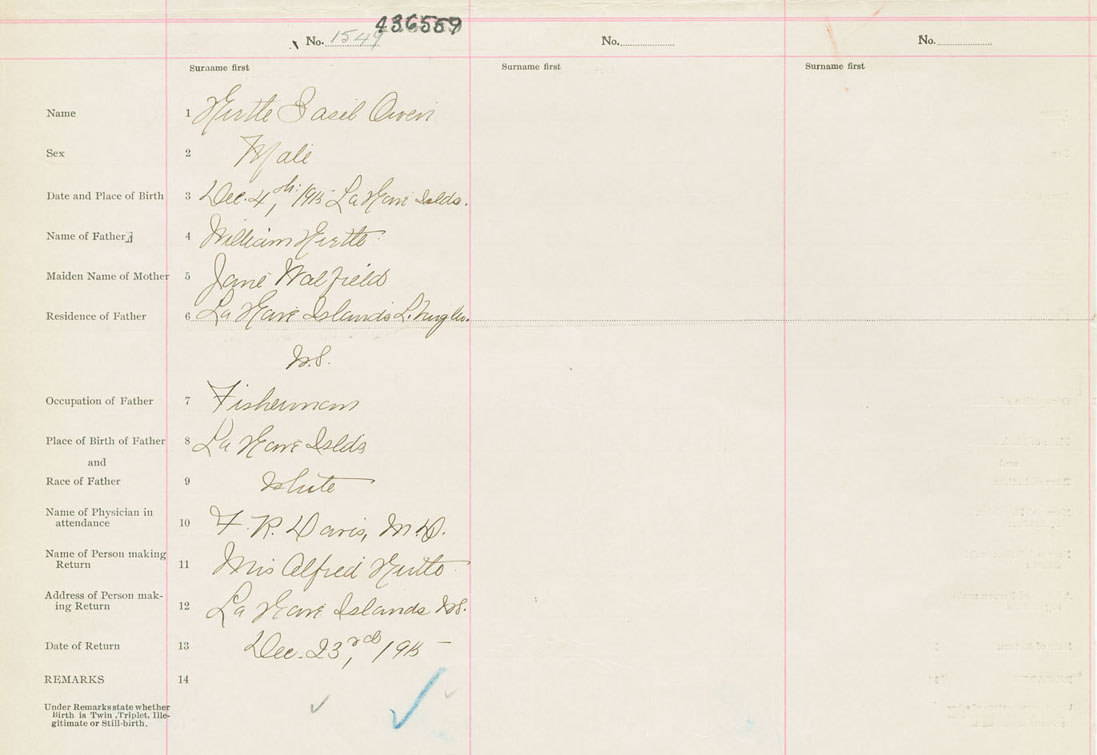 436559
No. 1549 No. No.
Surname first Surname first Surname first
Name 1 Hirtle Basil Owen
Sex 2 Male
Date and Place of Birth 3 Dec. 4th, 1915 La Have Islds.
Name of Father 4 William Hirtle
Maiden Name of Mother 5 Jane Walfield
Residence of Father 6 La Have Islands
N.S.
Occupation of Father 7 Fisherman
Place of Birth of Father 8 La Have Islds
and
Race of Father 9 White
Name of Physician in
attendance 10 F. R. Davis, M.D.
Name of Person making
Return 11 Mrs Alfred Hirtle
Address of Person mak-
ing Return 12 La Have Islands N.S.
Date of Return 13 Dec. 23rd, 1915
REMARKS 14
Under Remarks state whether
Birth is Twin, Triplet, Ille-
gitimate or Still-birth.